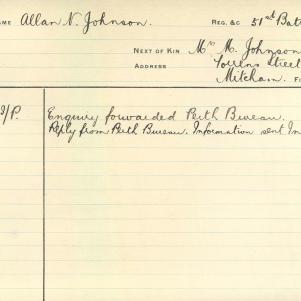 AME Allan N. Johnson. REG. &C 51st Bat
NEXT OF KIN Mrs M. Johnson
ADDRESS Torrens Street
Mitcham.
/P. Enquiry forwarded Perth Bureau.
Reply from Perth Bureau. Information sent In